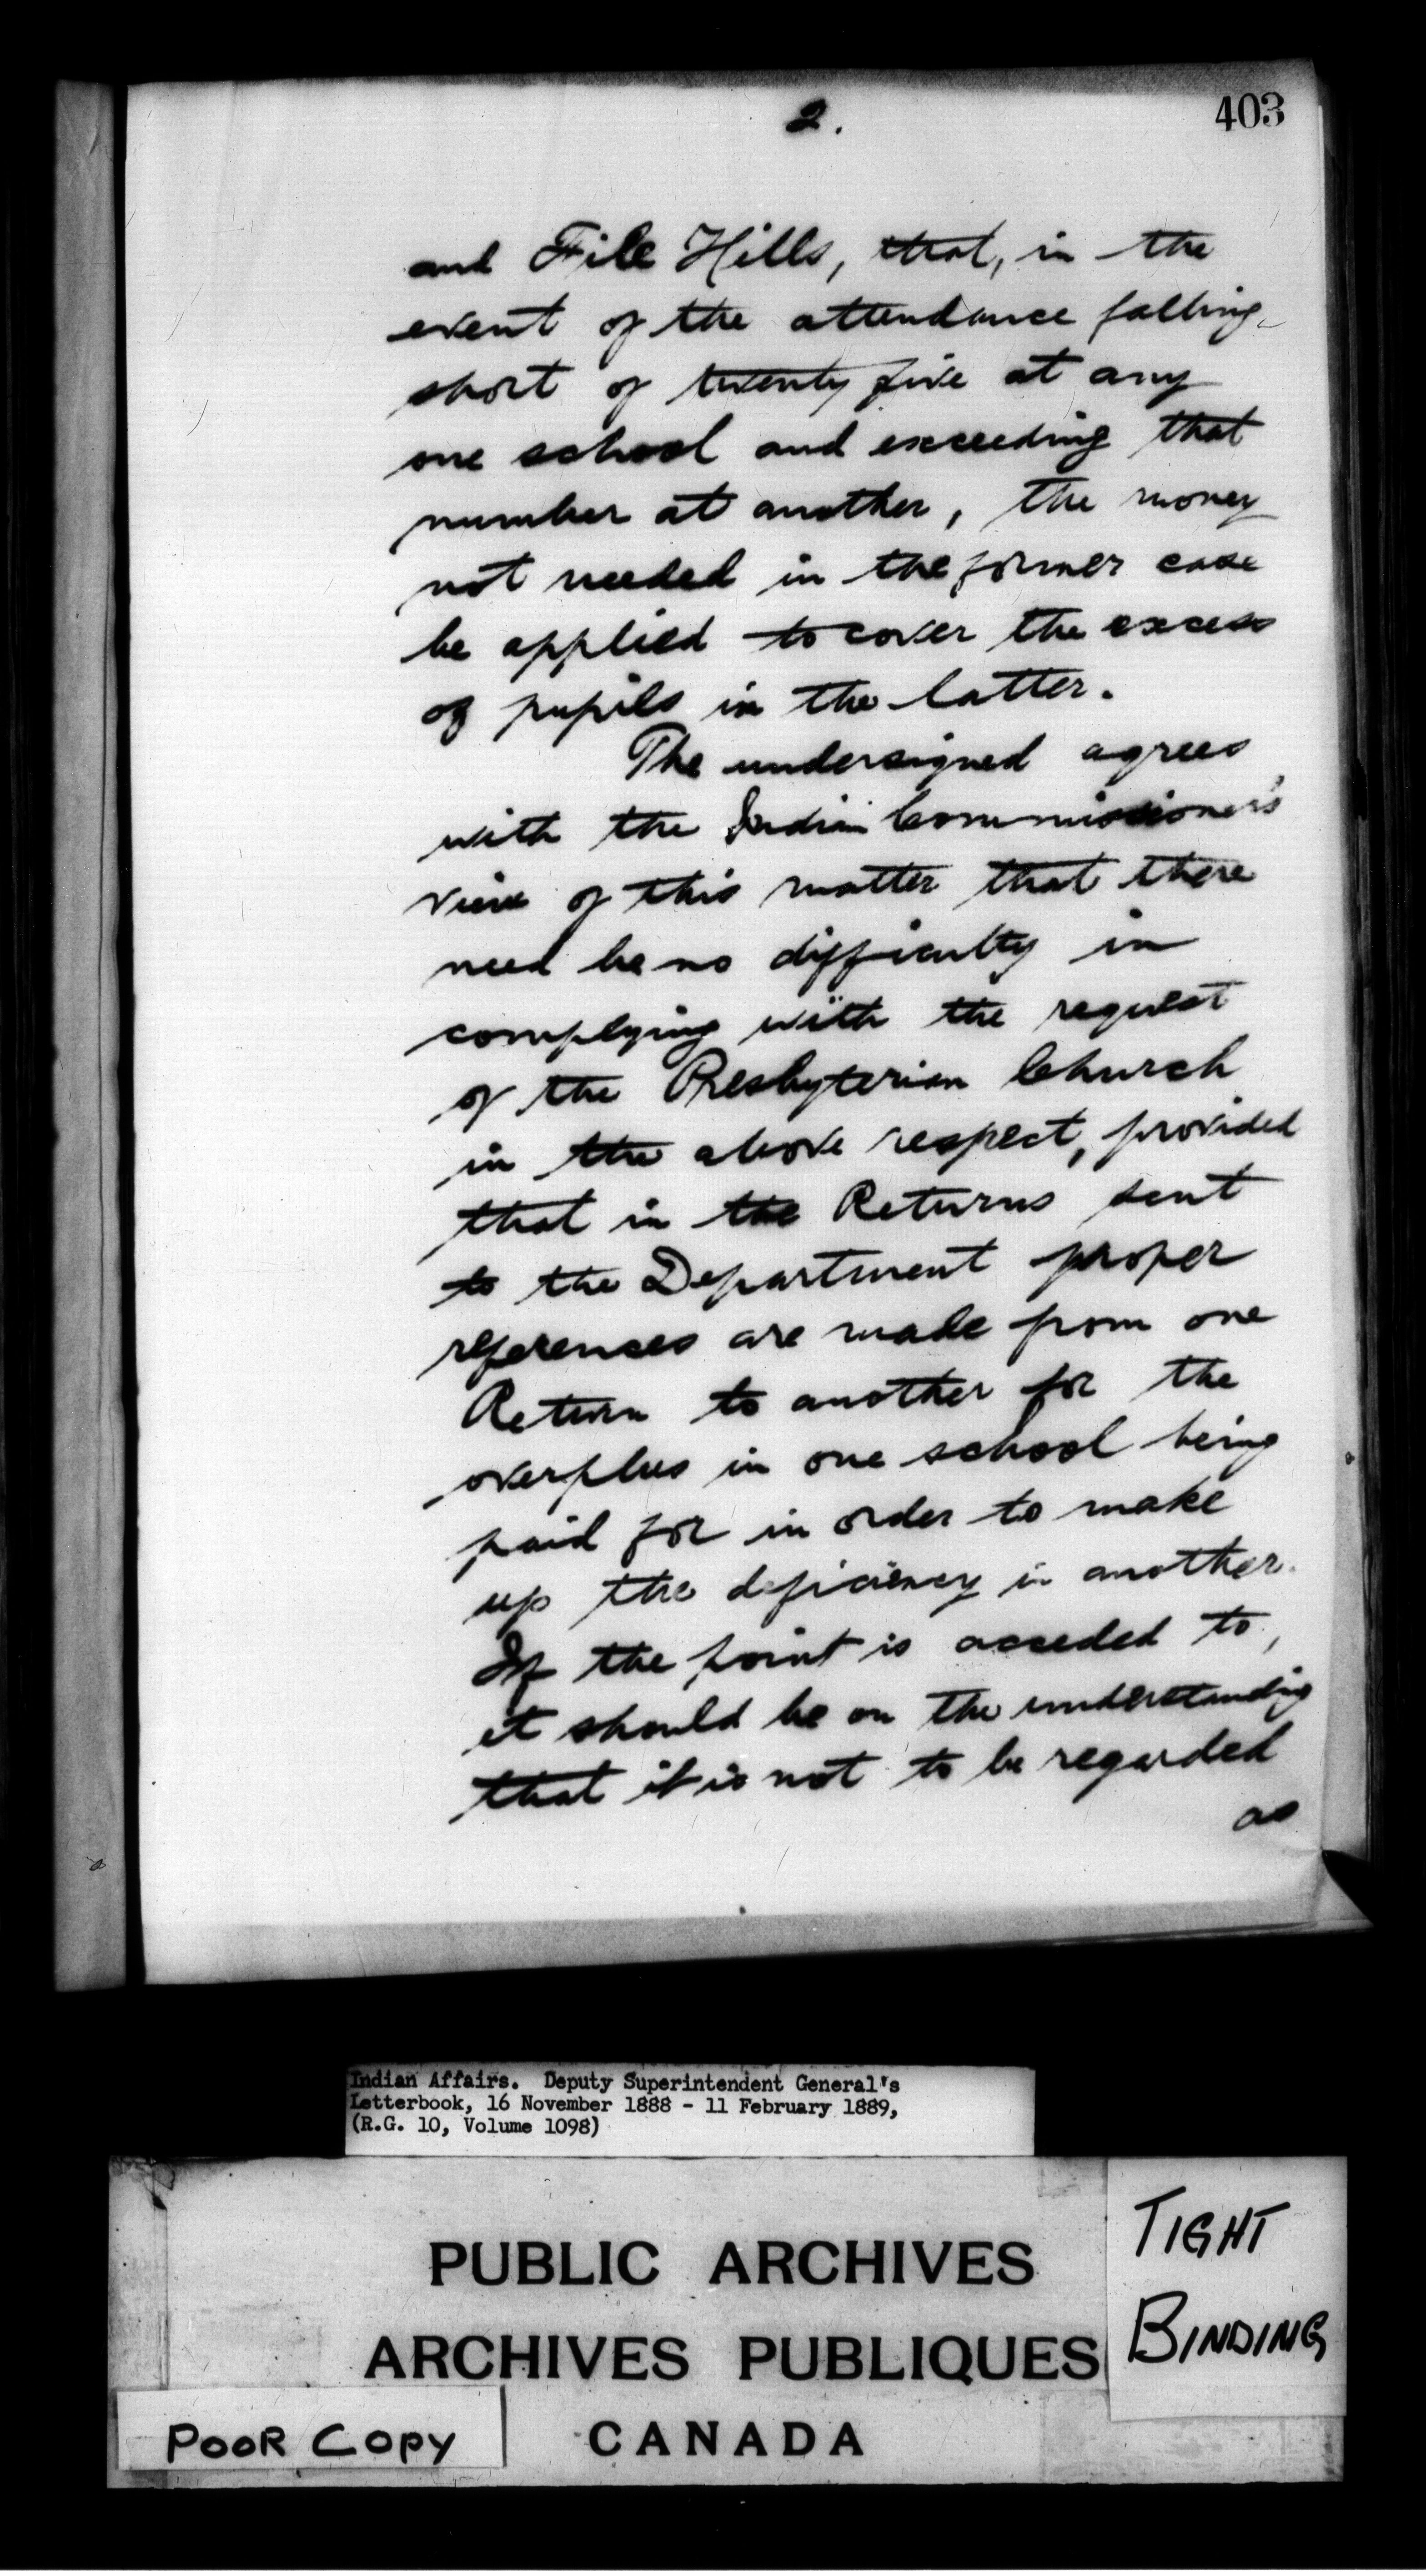 2.
403
and File Hills, that, in the
event of the attendance falling
short of twenty five at any
one school and exceeding that
number at another, the money
not needed in the former case
be applied to cover the excess
of pupils in the latter.
The undersigned agrees
with the Indian Commissioner's
view of this matter that there
need be no difficulty in
complying with the request
of the Presbyterian Church
in the above respect, provided
that in the Returns sent
to the Department proper
references are made from one
Return to another for the
overplus in one school being
paid for in order to make
up the deficiency in another.
If the point is acceded to,
it should be on the understanding
that it is not to be regarded
as
Indian Affairs. Deputy Superintendent General's
Letterbook, 16 November 1888 - 11 February 1889,
(R.G. 10, Volume 1098)
PUBLIC ARCHIVES
ARCHIVES PUBLIQUES
CANADA
TIGHT
BINDING
POOR COPY